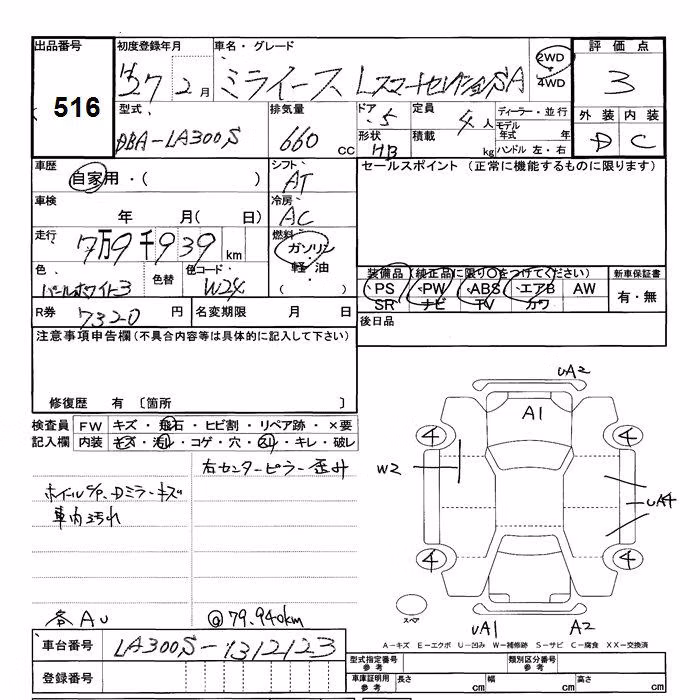 出品番号 初度登録年月 車名・グレード 2WD 4WD 評価点
516 H27 2月 ミライース Lスマートセレクション SA 3
型式 排気量 ドア 定員 ディーラー・並行 外装 内装
DBA-LA300S 660 cc 5 4人 モデル年式 年 D C
形状 HB 積載 kg ハンドル 左・右
車歴 自家用・( ) シフト AT セールスポイント (正常に機能するものに限ります)
車検 年 月( 日) 冷房 AC
走行 7万9千939 km 燃料 ガソリン・軽油 ( )
色 パールホワイト3 色替 色コード W24
装備品 (純正品に限り○をつけてください) 新車保証書
PS PW ABS エアB AW 有・無
SR ナビ TV カワ
R券 7320円 名変期限 月 日 後日品
注意事項申告欄 (不具合内容等は具体的に記入して下さい)
修復歴 有 〔箇所 〕
検査員 FW キズ・飛石・ヒビ割・リペア跡・×要
記入欄 内装 キズ・汚レ・コゲ・穴・スレ・キレ・破レ
右センターピラー歪み
ホイールC/P、Dミラーキズ
車内汚れ
各AU @79.940km
UA2
A1
4 4
W2
UA4
4 4
スペア
UA1 A2
A-キズ E-エクボ U-凹み W-補修跡 S-サビ C-腐食 XX-交換済
車台番号 LA300S-1312123
登録番号
型式指定番号 参考 類別区分番号 参考
車庫証明用 参考 長さ cm 幅 cm 高さ cm